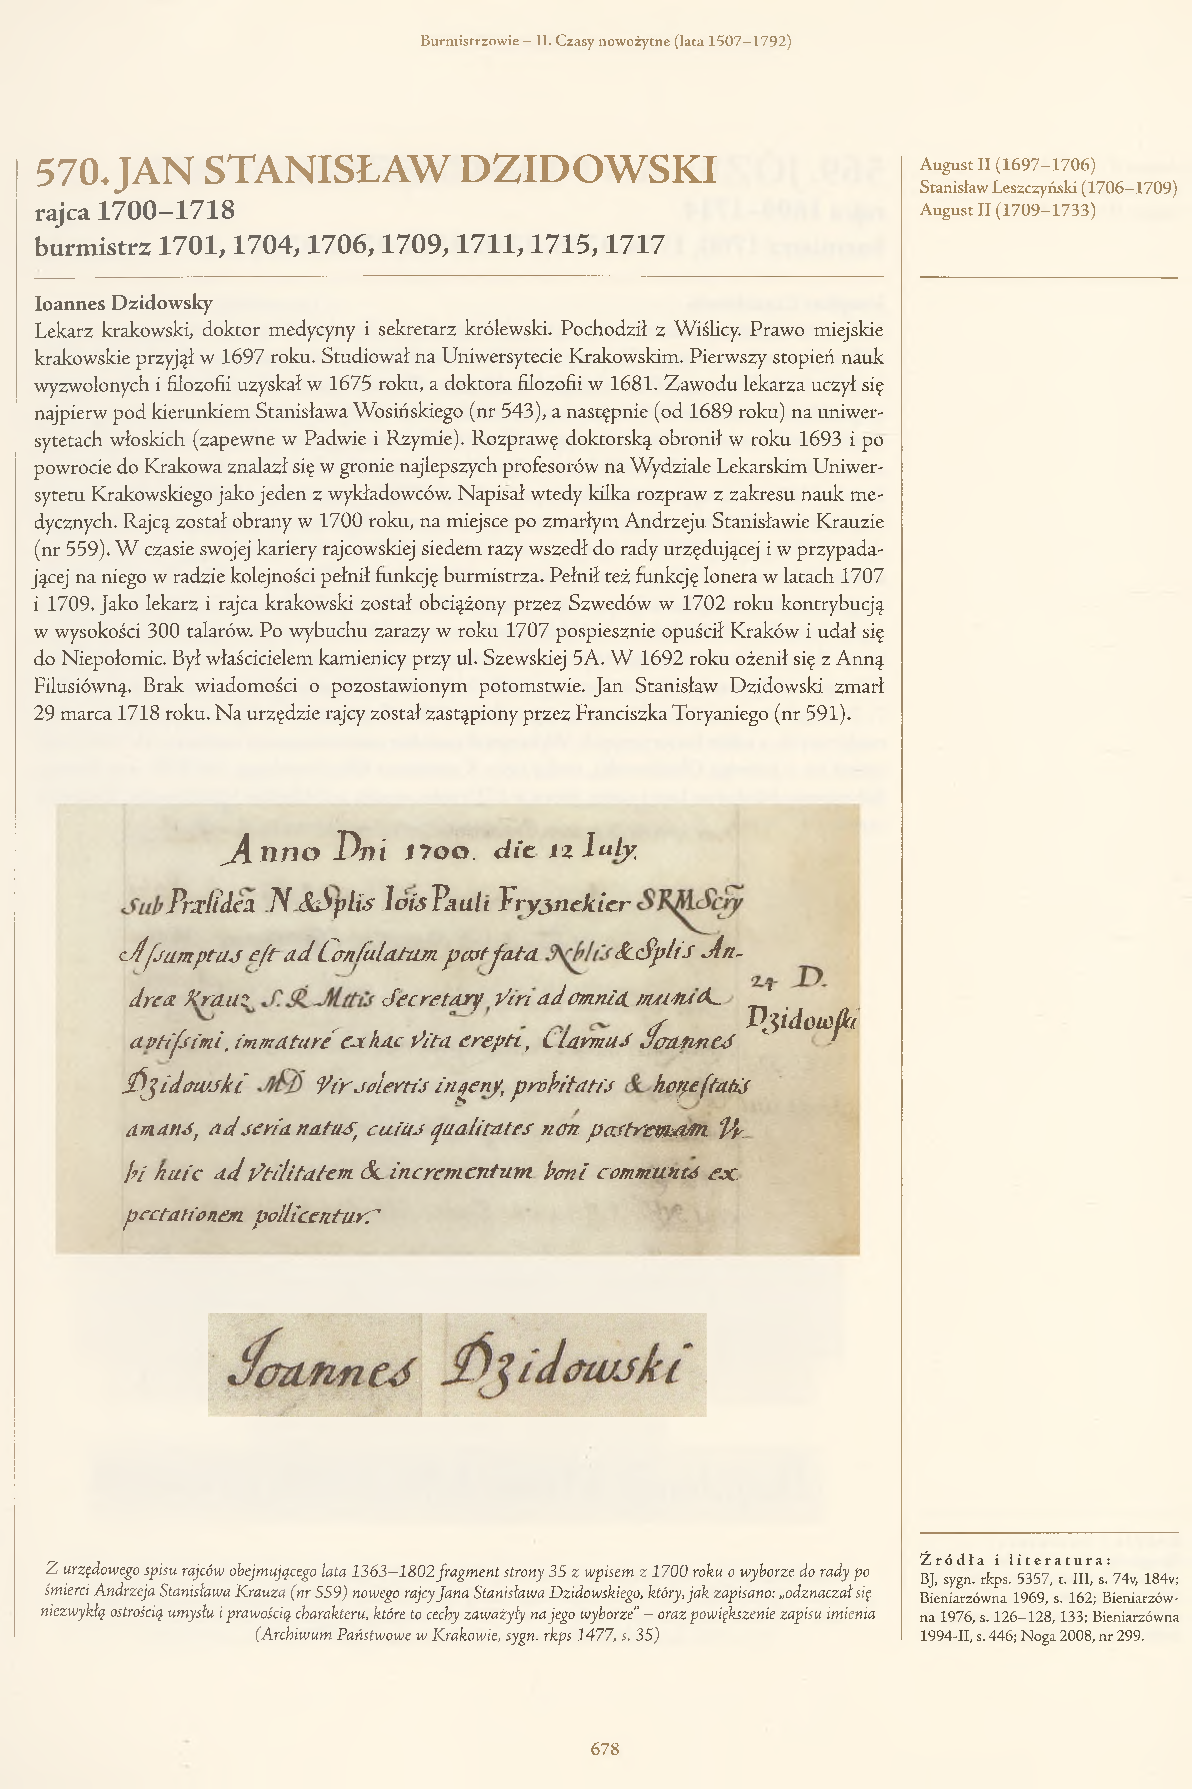 Burmistrzowie – II. Czasy nowożytne (lata 1507–1792)
570. JAN STANISŁAW DZIDOWSKI
rajca 1700–1718
burmistrz 1701, 1704, 1706, 1709, 1711, 1715, 1717
August II (1697–1706)
Stanisław Leszczyński (1706–1709)
August II (1709–1733)
Ioannes Dzidowsky
Lekarz krakowski, doktor medycyny i sekretarz królewski. Pochodził z Wiślicy. Prawo miejskie
krakowskie przyjął w 1697 roku. Studiował na Uniwersytecie Krakowskim. Pierwszy stopień nauk
wyzwolonych i filozofii uzyskał w 1675 roku, a doktora filozofii w 1681. Zawodu lekarza uczył się
najpierw pod kierunkiem Stanisława Wosińskiego (nr 543), a następnie (od 1689 roku) na uniwer-
sytetach włoskich (zapewne w Padwie i Rzymie). Rozprawę doktorską obronił w roku 1693 i po
powrocie do Krakowa znalazł się w gronie najlepszych profesorów na Wydziale Lekarskim Uniwer-
sytetu Krakowskiego jako jeden z wykładowców. Napisał wtedy kilka rozpraw z zakresu nauk me-
dycznych. Rajcą został obrany w 1700 roku, na miejsce po zmarłym Andrzeju Stanisławie Krauzie
(nr 559). W czasie swojej kariery rajcowskiej siedem razy wszedł do rady urzędującej i w przypada-
jącej na niego w radzie kolejności pełnił funkcję burmistrza. Pełnił też funkcję lonera w latach 1707
i 1709. Jako lekarz i rajca krakowski został obciążony przez Szwedów w 1702 roku kontrybucją
w wysokości 300 talarów. Po wybuchu zarazy w roku 1707 pospiesznie opuścił Kraków i udał się
do Niepołomic. Był właścicielem kamienicy przy ul. Szewskiej 5A. W 1692 roku ożenił się z Anną
Filusiówną. Brak wiadomości o pozostawionym potomstwie. Jan Stanisław Dzidowski zmarł
29 marca 1718 roku. Na urzędzie rajcy został zastąpiony przez Franciszka Toryaniego (nr 591).
Anno Dni 1700. die 12 Iuly.
Sub Præsidẽa N. &Splis Iois Pauli Fryznekier SRM
Assumptus est ad Consulatum post fata Nblis &Splis An-
drea Krauz S. R. Mttis Secretary, Viri ad omnia munia
aptissimi, immature ex hac Vita erepti, Clarmus Joannes
Dzidowski MD Vir solertis ingeny, probitatis & honestatis
amans, ad seria natus, cuius qualitates non postremam Vr-
bi huic ad Vtilitatem & incrementum boni communis ex
pectationem pollicentur.
24 D.
Dzidowski
Joannes Dzidowski
Z urzędowego spisu rajców obejmującego lata 1363–1802 fragment strony 35 z wpisem z 1700 roku o wyborze do rady po
śmierci Andrzeja Stanisława Krauza (nr 559) nowego rajcy Jana Stanisława Dzidowskiego, który, jak zapisano: „odznaczał się
niezwykłą ostrością umysłu i prawością charakteru, które to cechy zaważyły na jego wyborze” – oraz powiększenie zapisu imienia
(Archiwum Państwowe w Krakowie, sygn. rkps 1477, s. 35)
Źródła i literatura:
BJ, sygn. rkps. 5357, t. III, s. 74v, 184v;
Bieniarzówna 1969, s. 162; Bieniarzów-
na 1976, s. 126–128, 133; Bieniarzówna
1994-II, s. 446; Noga 2008, nr 299.
678